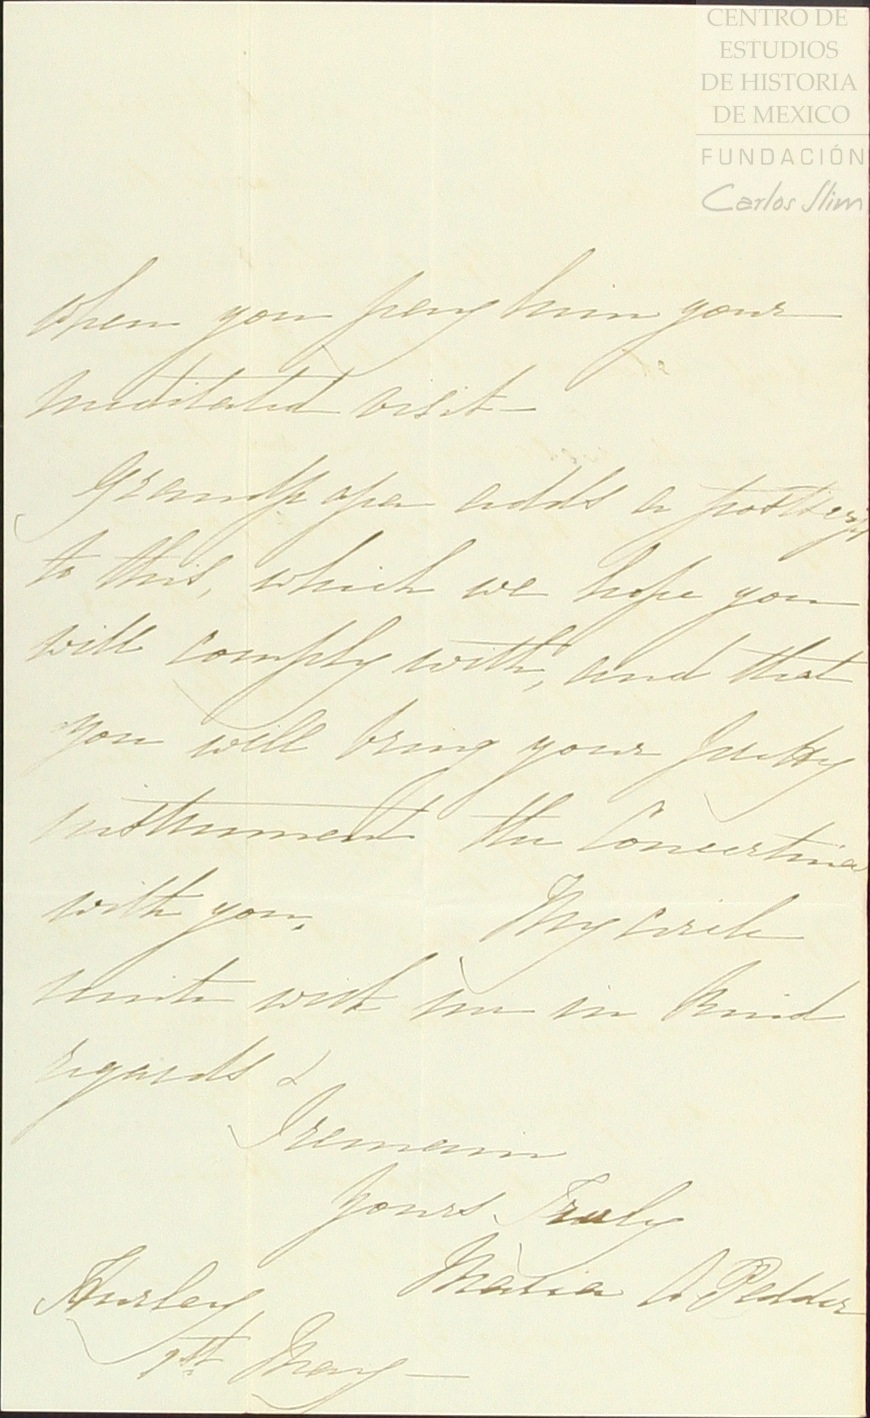 CENTRO DE
ESTUDIOS
DE HISTORIA
DE MEXICO
FUNDACIÓN
Carlos Slim
when you pay him your
meditated visit—
Grandpapa adds a postscript
to this, which we hope you
will comply with, and that
you will bring your pretty
instrument the Concertina
with you. My circle
unite with me in kind
regards &
I remain
Yours Truly
Maria A Pedder
Hurley
1st May—